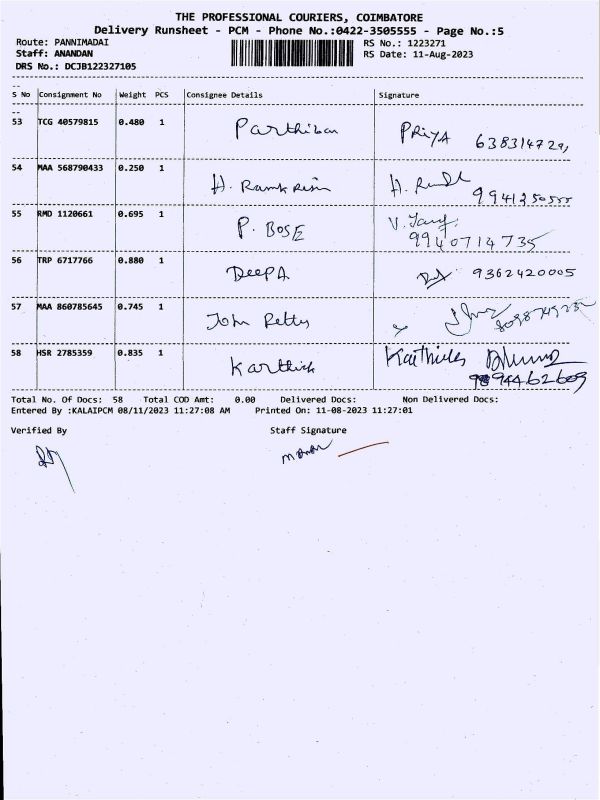 THE PROFESSIONAL COURIERS, COIMBATORE
Delivery Runsheet - PCM - Phone No.:0422-3505555 - Page No.:5
Route: PANNIMADAI RS No.: 1223271
Staff: ANANDAN RS Date: 11-Aug-2023
DRS No.: DCJB122327105
S No Consignment No Weight PCS Consignee Details Signature
53 TCG 40579815 0.480 1 Parthiban PRiYA
54 MAA 568790433 0.250 1 H. 9941250555
55 RMD 1120661 0.695 1 P. BOSE V.
9940714735
56 TRP 6717766 0.880 1 DeePA 9362420005
57 MAA 860785645 0.745 1 John
58 HSR 2785359 0.835 1 Karthick
Total No. Of Docs: 58 Total COD Amt: 0.00 Delivered Docs: Non Delivered Docs:
Entered By :KALAIPCM 08/11/2023 11:27:08 AM Printed On: 11-08-2023 11:27:01
Verified By Staff Signature